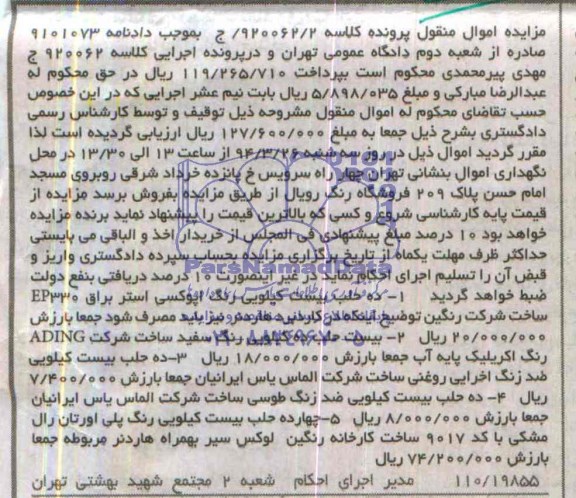 مزایده اموال منقول پرونده کلاسه ۹۲۰۰۶۲/۲/ ج بموجب دادنامه ۹۱۰۱۰۷۳
صادره از شعبه دوم دادگاه عمومی تهران و درپرونده اجرایی کلاسه ۹۲۰۰۶۲ ج
مهدی پیرمحمدی محکوم است بپرداخت ۱۱۹/۲۶۵/۷۱۰ ریال در حق محکوم له
عبدالرضا مبارکی و مبلغ ۵/۸۹۸/۰۳۵ ریال بابت نیم عشر اجرایی که در این خصوص
حسب تقاضای محکوم له اموال منقول مشروحه ذیل توقیف و توسط کارشناس رسمی
دادگستری بشرح ذیل جمعا به مبلغ ۱۲۷/۶۰۰/۰۰۰ ریال ارزیابی گردیده است لذا
مقرر گردید اموال ذیل در روز سه شنبه ۹۴/۳/۲۶ از ساعت ۱۳ الی ۱۳/۳۰ در محل
نگهداری اموال بنشانی تهران چهار راه سرویس خ پانزده خرداد شرقی روبروی مسجد
امام حسن پلاک ۲۰۹ فروشگاه رنگ رویال از طریق مزایده بفروش برسد مزایده از
قیمت پایه کارشناسی شروع و کسی که بالاترین قیمت را پیشنهاد نماید برنده مزایده
خواهد بود ۱۰ درصد مبلغ پیشنهادی فی المجلس از خریدار اخذ و الباقی می بایستی
حداکثر ظرف مهلت یکماه از تاریخ برگزاری مزایده بحساب سپرده دادگستری واریز و
قبض آن را تسلیم اجرای احکام نماید در غیر اینصورت ۱۰ درصد دریافتی بنفع دولت
ضبط خواهد گردید ۱- ده حلب بیست کیلویی رنگ اپوکسی استر براق EP۳۳۰
ساخت شرکت رنگین توضیح اینکه در کاربرد هاردنر نیز باید مصرف شود جمعا بارزش
۲۰/۰۰۰/۰۰۰ ریال ۲- بیست حلب ده کیلویی رنگ سفید ساخت شرکت ADING
رنگ اکریلیک پایه آب جمعا بارزش ۱۸/۰۰۰/۰۰۰ ریال ۳-ده حلب بیست کیلویی
ضد زنگ اخرایی روغنی ساخت شرکت الماس یاس ایرانیان جمعا بارزش ۷/۴۰۰/۰۰۰
ریال ۴- ده حلب بیست کیلویی ضد زنگ طوسی ساخت شرکت الماس یاس ایرانیان
جمعا بارزش ۸/۰۰۰/۰۰۰ ریال ۵-چهارده حلب بیست کیلویی رنگ پلی اورتان رال
مشکی با کد ۹۰۱۷ ساخت کارخانه رنگین لوکس سیر بهمراه هاردنر مربوطه جمعا
بارزش ۷۴/۲۰۰/۰۰۰ ریال
۱۱۰/۱۹۸۵۵ مدیر اجرای احکام شعبه ۲ مجتمع شهید بهشتی تهران
ParsNamadData